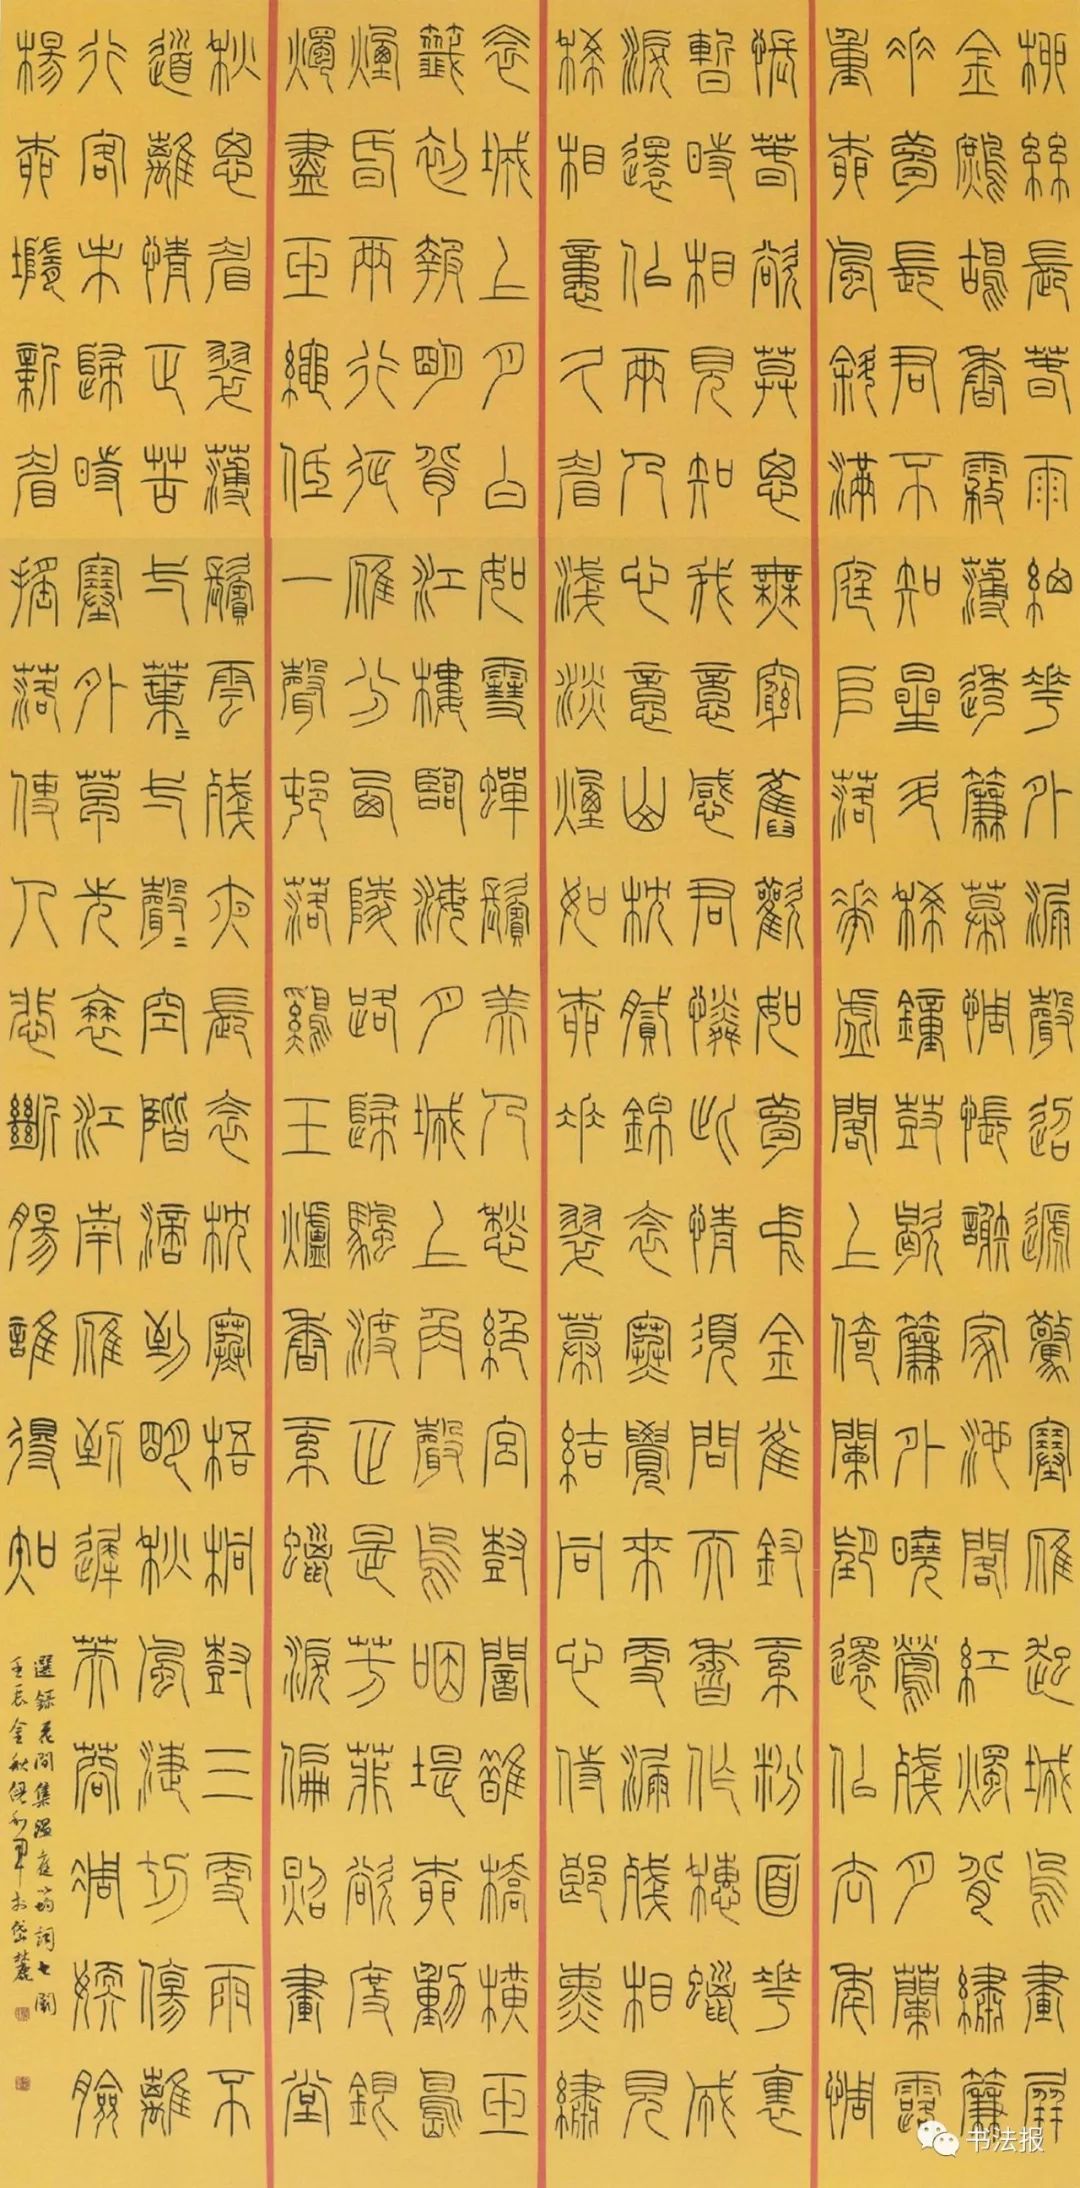 柳絲長春雨細花外漏聲迢遞驚塞雁起城烏畫屏
金鷓鴣香霧薄透簾幕惆悵謝家池閣紅燭背繡簾
垂夢長君不知星斗稀鐘鼓歇簾外曉鶯殘月蘭露
重柳風斜滿庭戶落花虛閣上倚闌望還似去年惆
悵春欲暮思無窮舊歡如夢中金雀釵紅粉面花裏
暫時相見知我意感君憐此情須問天香作穗蠟成
淚還似兩人心意山枕膩錦衾寒覺來更漏殘相見
稀相憶久眉淺淡煙如柳垂翠幕結同心侍郎熏繡
衾城上月白如雪蟬鬢美人愁絕宮樹暗鵲橋橫玉
籤初報明背江樓臨海月城上角聲嗚咽堤柳動島
煙昏兩行征雁分西陵路歸帆渡正是芳菲欲度銀
燭盡玉繩低一聲村落雞玉爐香紅蠟淚偏照畫堂
秋思眉翠薄鬢雲殘夜長衾枕寒梧桐樹三更雨不
道離情正苦一葉〻一聲〻空階滴到明秋風淒切傷離
行客未歸時塞外草先衰江南雁到遲芙蓉凋嫩臉
楊柳墮新眉搖落使人悲斷腸誰得知
選錄花間集溫庭筠詞七闋
壬辰金秋利軍於岱麓
书法报